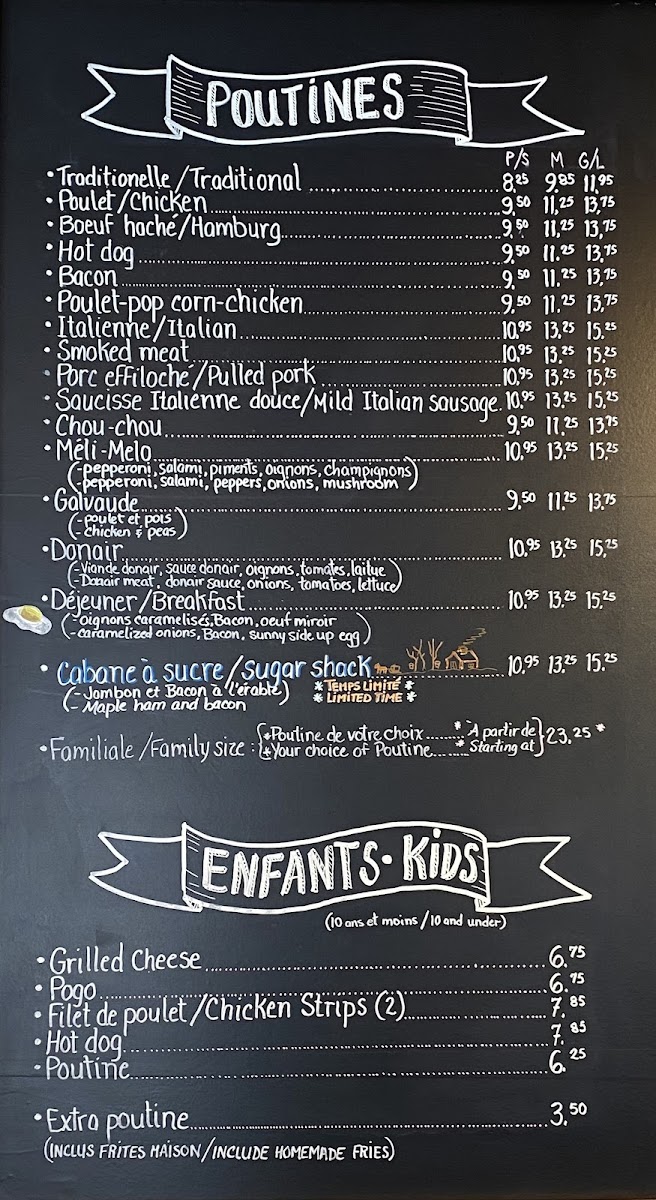 POUTINES
P/S M G/L
• Traditionelle/Traditional 8,25 9,85 11,95
• Poulet/Chicken 9,50 11,25 13,75
• Boeuf haché/Hamburg 9,50 11,25 13,75
• Hot dog 9,50 11.25 13,75
• Bacon 9,50 11.25 13,75
• Poulet-pop corn-chicken 9,50 11,25 13,75
• Italienne/Italian 10,95 13,25 15,25
• Smoked meat 10,95 13,25 15,25
• Porc effiloché/Pulled pork 10,95 13,25 15,25
• Saucisse Italienne douce/Mild Italian sausage 10,95 13,25 15,25
• Chou-chou 9,50 11,25 13,75
• Méli-Melo 10,95 13,25 15,25
(-pepperoni, salami, piments, oignons, champignons)
(-pepperoni, salami, peppers, onions, mushroom)
• Galvaude 9,50 11,25 13,75
(-poulet et pois)
(-chicken & peas)
• Donair 10,95 13,25 15,25
(-Viande donair, sauce donair, oignons, tomates, laitue)
(-Donair meat, donair sauce, onions, tomatoes, lettuce)
• Déjeuner/Breakfast 10,95 13,25 15,25
(-oignons caramelisés, Bacon, oeuf miroir)
(-caramelized onions, Bacon, sunny side up egg)
• Cabane à sucre/sugar shack 10,95 13,25 15,25
(-Jambon et Bacon à l'érable)
* TEMPS LIMITÉ *
(- Maple ham and bacon
* LIMITED TIME *
• Familiale/Family size : *Poutine de votre choix * À partir de 23.25 *
*Your choice of Poutine * Starting at
ENFANTS • KIDS
(10 ans et moins / 10 and under)
• Grilled Cheese 6,75
• Pogo 6,75
• Filet de poulet/Chicken Strips (2) 7,85
• Hot dog 7,85
• Poutine 6,25
• Extra poutine 3,50
(INCLUS FRITES MAISON/INCLUDE HOMEMADE FRIES)